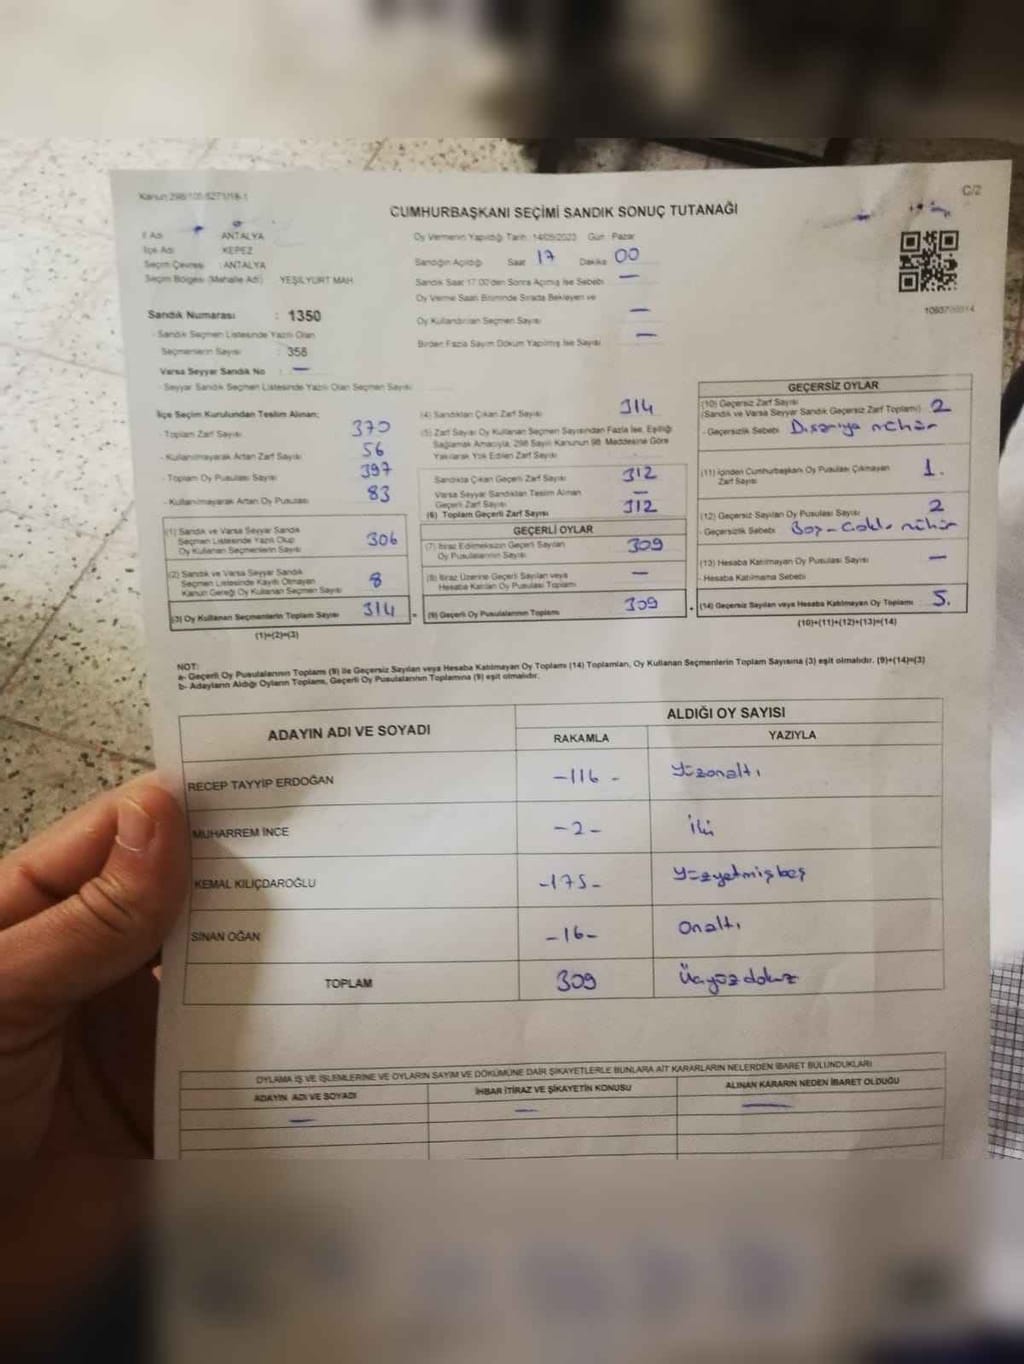 Kanun:298/105 6271/18-1
C/2
CUMHURBAŞKANI SEÇİMİ SANDIK SONUÇ TUTANAĞI
İl Adı : ANTALYA
İlçe Adı : KEPEZ
Seçim Çevresi : ANTALYA
Seçim Bölgesi (Mahalle Adı) : YEŞİLYURT MAH.
Sandık Numarası : 1350
- Sandık Seçmen Listesinde Yazılı Olan
Seçmenlerin Sayısı : 358
Varsa Seyyar Sandık No : —
- Seyyar Sandık Seçmen Listesinde Yazılı Olan Seçmen Sayısı
Oy Vermenin Yapıldığı Tarih : 14/05/2023 Gün : Pazar
Sandığın Açıldığı Saat 17 Dakika 00
Sandık Saat 17.00'den Sonra Açılmış İse Sebebi —
Oy Verme Saati Bitiminde Sırada Bekleyen ve
Oy Kullandırılan Seçmen Sayısı —
Birden Fazla Sayım Döküm Yapılmış İse Sayısı —
İlçe Seçim Kurulundan Teslim Alınan;
- Toplam Zarf Sayısı 370
- Kullanılmayarak Artan Zarf Sayısı 56
- Toplam Oy Pusulası Sayısı 397
- Kullanılmayarak Artan Oy Pusulası 83
(1) Sandık ve Varsa Seyyar Sandık
Seçmen Listesinde Yazılı Olup
Oy Kullanan Seçmenlerin Sayısı 306
(2) Sandık ve Varsa Seyyar Sandık
Seçmen Listesinde Kayıtlı Olmayan
Kanun Gereği Oy Kullanan Seçmen Sayısı 8
(3) Oy Kullanan Seçmenlerin Toplam Sayısı 314
(1)+(2)=(3)
(4) Sandıktan Çıkan Zarf Sayısı 314
(5) Zarf Sayısı Oy Kullanan Seçmen Sayısından Fazla İse, Eşitliği
Sağlamak Amacıyla, 298 Sayılı Kanunun 98. Maddesine Göre
Yakılarak Yok Edilen Zarf Sayısı
Sandıkta Çıkan Geçerli Zarf Sayısı 312
Varsa Seyyar Sandıktan Teslim Alınan
Geçerli Zarf Sayısı —
(6) Toplam Geçerli Zarf Sayısı 312
GEÇERLİ OYLAR
(7) İtiraz Edilmeksizin Geçerli Sayılan
Oy Pusulalarının Sayısı 309
(8) İtiraz Üzerine Geçerli Sayılan veya
Hesaba Katılan Oy Pusulası Toplamı —
(9) Geçerli Oy Pusulalarının Toplamı 309
GEÇERSİZ OYLAR
(10) Geçersiz Zarf Sayısı
(Sandık ve Varsa Seyyar Sandık Geçersiz Zarf Toplamı) 2
- Geçersizlik Sebebi Dışarıya mühür
(11) İçinden Cumhurbaşkanı Oy Pusulası Çıkmayan
Zarf Sayısı 1.
(12) Geçersiz Sayılan Oy Pusulası Sayısı 2
- Geçersizlik Sebebi Boş-Çoklu mühür
(13) Hesaba Katılmayan Oy Pusulası Sayısı —
- Hesaba Katılmama Sebebi
(14) Geçersiz Sayılan veya Hesaba Katılmayan Oy Toplamı 5.
(10)+(11)+(12)+(13)=(14)
NOT:
a- Geçerli Oy Pusulalarının Toplamı (9) ile Geçersiz Sayılan veya Hesaba Katılmayan Oy Toplamı (14) Toplamları, Oy Kullanan Seçmenlerin Toplam Sayısına (3) eşit olmalıdır. (9)+(14)=(3)
b- Adayların Aldığı Oyların Toplamı, Geçerli Oy Pusulalarının Toplamına (9) eşit olmalıdır.
ADAYIN ADI VE SOYADI
ALDIĞI OY SAYISI
RAKAMLA YAZIYLA
RECEP TAYYİP ERDOĞAN -116- Yüzonaltı
MUHARREM İNCE -2- İki
KEMAL KILIÇDAROĞLU -175- Yüzyetmişbeş
SİNAN OĞAN -16- Onaltı
TOPLAM 309 Üçyüzdokuz
OYLAMA İŞ VE İŞLEMLERİNE VE OYLARIN SAYIM VE DÖKÜMÜNE DAİR ŞİKAYETLERLE BUNLARA AİT KARARLARIN NELERDEN İBARET BULUNDUKLARI
ADAYIN ADI VE SOYADI İHBAR İTİRAZ VE ŞİKAYETİN KONUSU ALINAN KARARIN NEDEN İBARET OLDUĞU
— — —